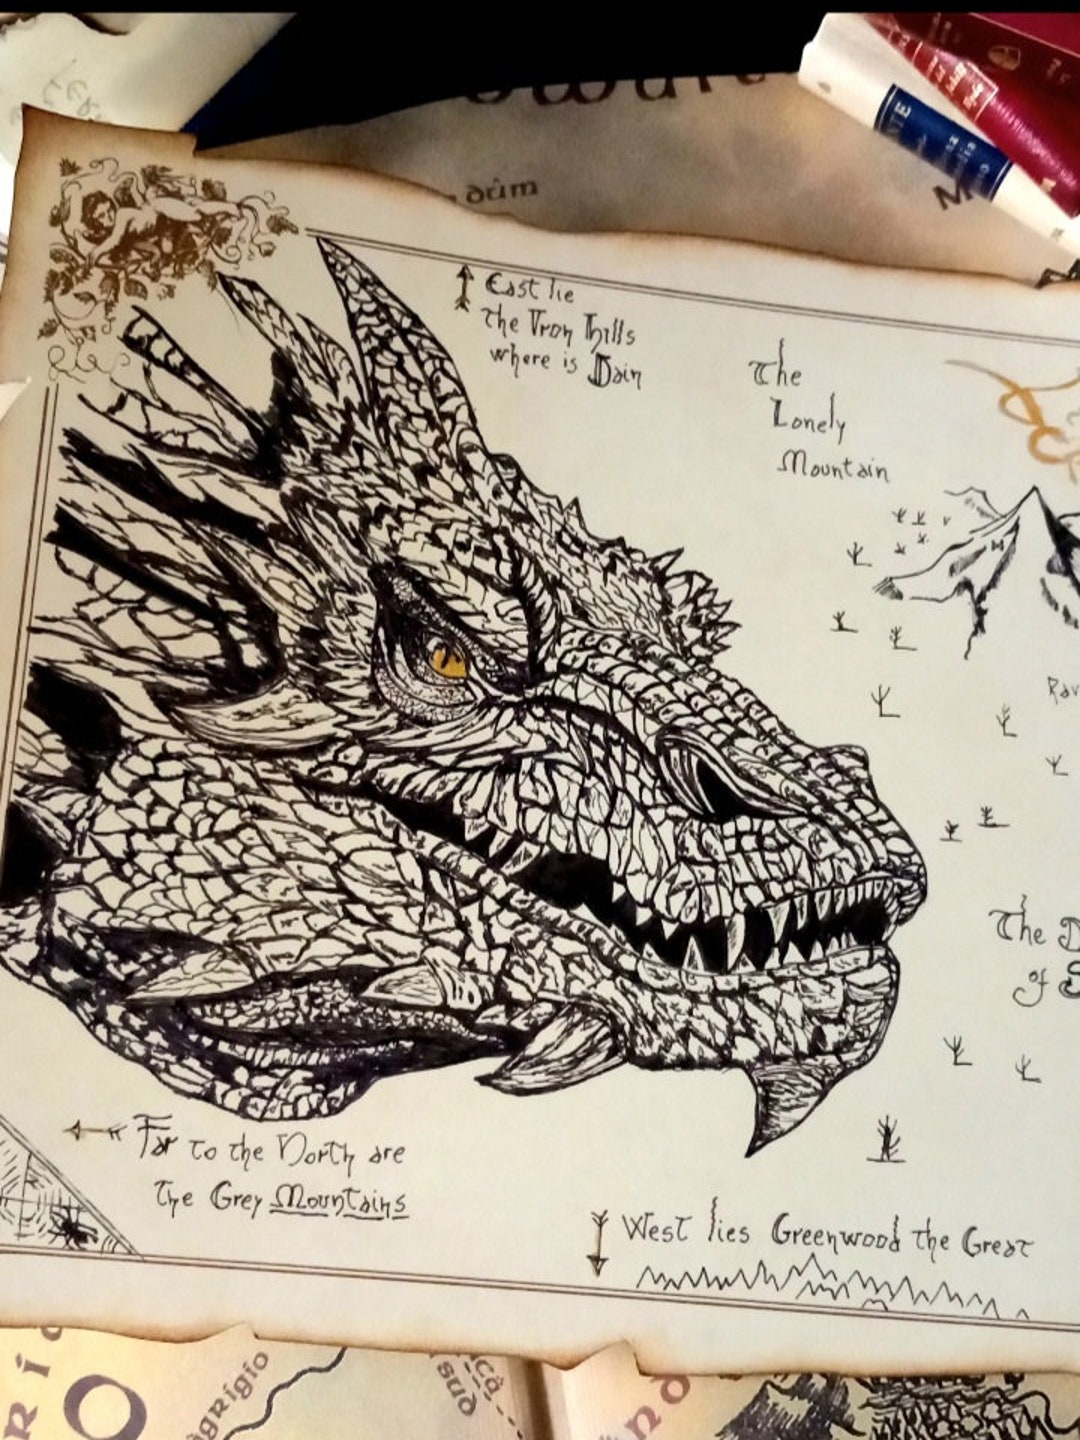 dûm
East lie
the Iron Hills
where is Dain
The
Lonely
Mountain
The
of
Far to the North are
the Grey Mountains
West lies Greenwood the Great
sud